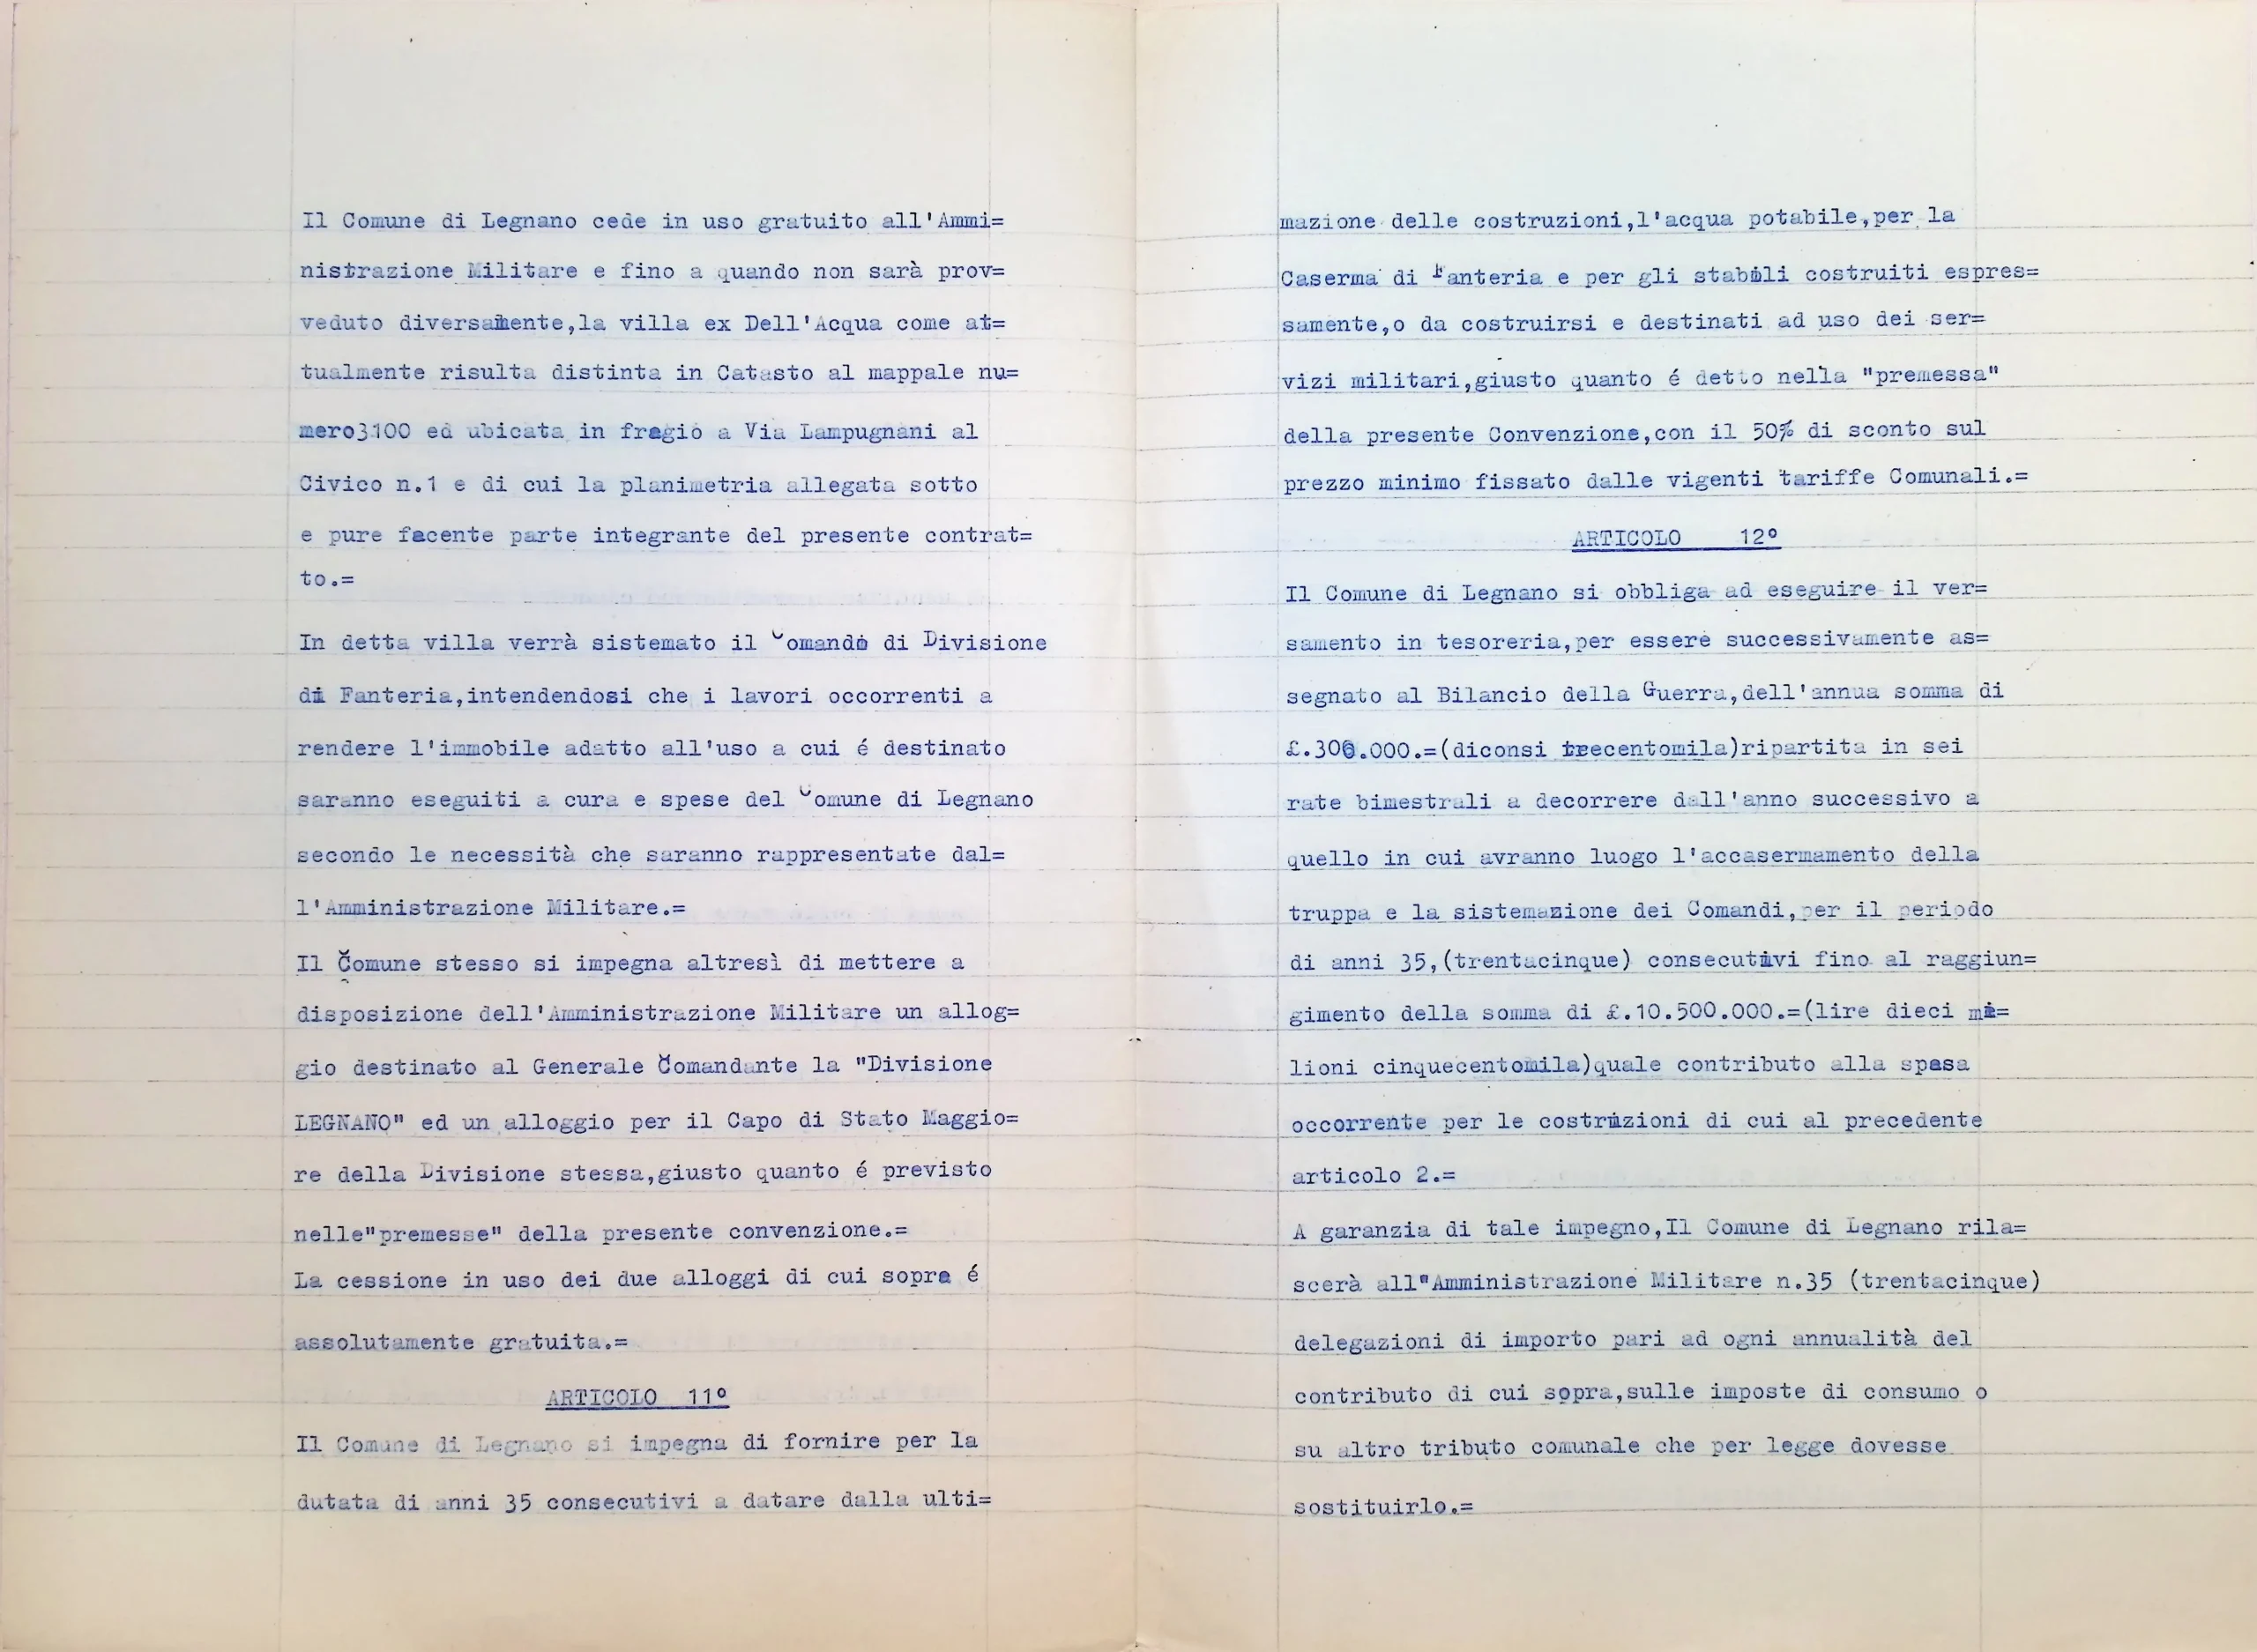 Il Comune di Legnano cede in uso gratuito all'Ammi=
nistrazione Militare e fino a quando non sarà prov=
veduto diversamente,la villa ex Dell'Acqua come at=
tualmente risulta distinta in Catasto al mappale nu=
mero3100 ed ubicata in fregio a Via Lampugnani al
Civico n.1 e di cui la planimetria allegata sotto
e pure facente parte integrante del presente contrat=
to.=
In detta villa verrà sistemato il Comando di Divisione
di Fanteria,intendendosi che i lavori occorrenti a
rendere l'immobile adatto all'uso a cui é destinato
saranno eseguiti a cura e spese del Comune di Legnano
secondo le necessità che saranno rappresentate dal=
l'Amministrazione Militare.=
Il Comune stesso si impegna altresì di mettere a
disposizione dell'Amministrazione Militare un allog=
gio destinato al Generale Comandante la "Divisione
LEGNANO" ed un alloggio per il Capo di Stato Maggio=
re della Divisione stessa,giusto quanto é previsto
nelle"premesse" della presente convenzione.=
La cessione in uso dei due alloggi di cui sopra é
assolutamente gratuita.=
ARTICOLO 11º
Il Comune di Legnano si impegna di fornire per la
dutata di anni 35 consecutivi a datare dalla ulti=
mazione delle costruzioni,l'acqua potabile,per la
Caserma di Fanteria e per gli stabili costruiti espres=
samente,o da costruirsi e destinati ad uso dei ser=
vizi militari,giusto quanto é detto nella "premessa"
della presente Convenzione,con il 50% di sconto sul
prezzo minimo fissato dalle vigenti tariffe Comunali.=
ARTICOLO 12º
Il Comune di Legnano si obbliga ad eseguire il ver=
samento in tesoreria,per essere successivamente as=
segnato al Bilancio della Guerra,dell'annua somma di
£.300.000.=(diconsi trecentomila)ripartita in sei
rate bimestrali a decorrere dall'anno successivo a
quello in cui avranno luogo l'accasermamento della
truppa e la sistemazione dei Comandi,per il periodo
di anni 35,(trentacinque) consecutivi fino al raggiun=
gimento della somma di £.10.500.000.=(lire dieci mi=
lioni cinquecentomila)quale contributo alla spesa
occorrente per le costruzioni di cui al precedente
articolo 2.=
A garanzia di tale impegno,Il Comune di Legnano rila=
scerà all"Amministrazione Militare n.35 (trentacinque)
delegazioni di importo pari ad ogni annualità del
contributo di cui sopra,sulle imposte di consumo o
su altro tributo comunale che per legge dovesse
sostituirlo.=